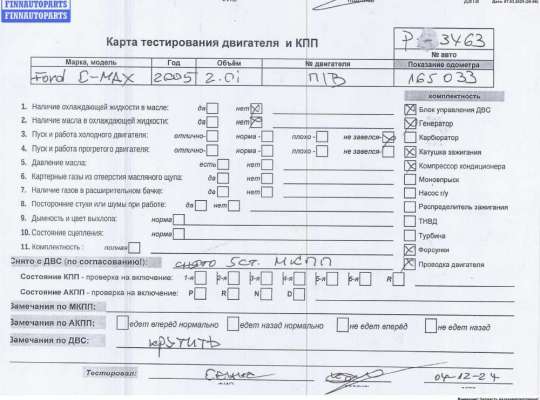 FINNAUTOPARTS
FINNAUTOPARTS
Карта тестирования двигателя и КПП
P-3463
№ авто
Марка, модель Год Объём № двигателя Показание одометра
Ford C-MAX 2005 2.0i П1В 165033
КОМПЛЕКТНОСТЬ
1. Наличие охлаждающей жидкости в масле: да нет
Блок управления ДВС
2. Наличие масла в охлаждающей жидкости: да нет
Генератор
3. Пуск и работа холодного двигателя: отлично- норма - плохо - не завелся-
Карбюратор
4. Пуск и работа прогретого двигателя: отлично- норма - плохо - не завелся-
Катушка зажигания
5. Давление масла: есть нет
Компрессор кондиционера
6. Картерные газы из отверстия масляного щупа: да нет
Моновпрыск
7. Наличие газов в расширительном бачке: да нет
Насос г/у
8. Посторонние стуки или шумы при работе: да нет
Распределитель зажигания
9. Дымность и цвет выхлопа: норма
ТНВД
10. Состояние сцепления: норма
Турбина
11. Комплектность : полная
Форсунки
Снято с ДВС (по согласованию!): снято 5ст. МКПП
Проводка двигателя
Состояние КПП - проверка на включение: 1-я 2-я 3-я 4-я 5-я 6-я R
Состояние АКПП - проверка на включение: P R N D
Замечания по МКПП:
Замечания по АКПП: едет вперёд нормально едет назад нормально не едет вперёд не едет назад
Замечания по ДВС: крутить
Тестировал: 04-12-24